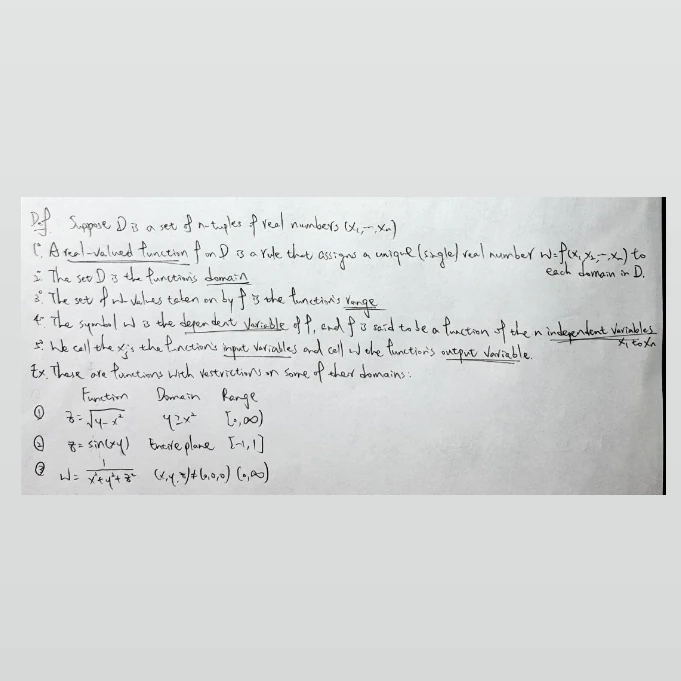 Def Suppose D is a set of n-tuples of real numbers (x₁,⋯,xₙ)
1° A real-valued function f on D is a rule that assigns a unique (single) real number w=f(x₁,x₂,⋯,xₙ) to
each domain in D.
2° The set D is the function's domain
3° The set of w-values taken on by f is the function's range
4° The symbol w is the dependent variable of f, and f is said to be a function of the n independent variables
x₁ to xₙ
5° We call the xⱼ's the function's input variables and call w the function's output variable.
Ex. These are functions with restrictions on some of their domains:
Function Domain Range
① z=√(y-x²) y≥x² [0,∞)
② z=sin(xy) Entire plane [-1,1]
③ w= 1/(x²+y²+z²) (x,y,z)≠(0,0,0) (0,∞)